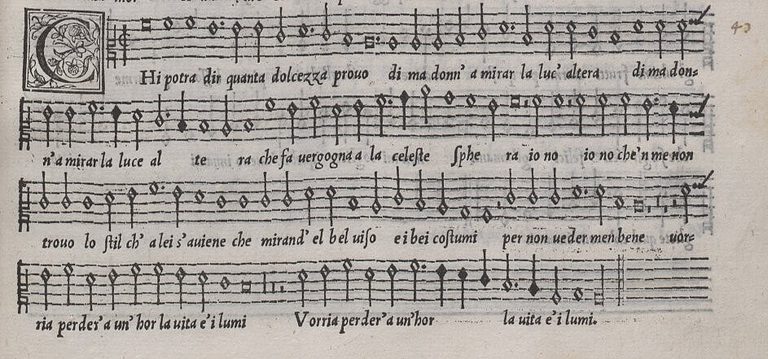 CHi potra dir quanta dolcezza prouo di ma donn' a mirar la luc' altera di ma don=
n'a mirar la luce al te ra che fa uergogna a la celeste sphe ra io no io no che'n me non
trouo lo stil ch' a lei s'auiene che mirand' el bel uiso e i bei costumi per non ueder men bene uor=
ria perder'a un' hor la uita e'i lumi Vorria perder'a un'hor la uita e'i lumi.